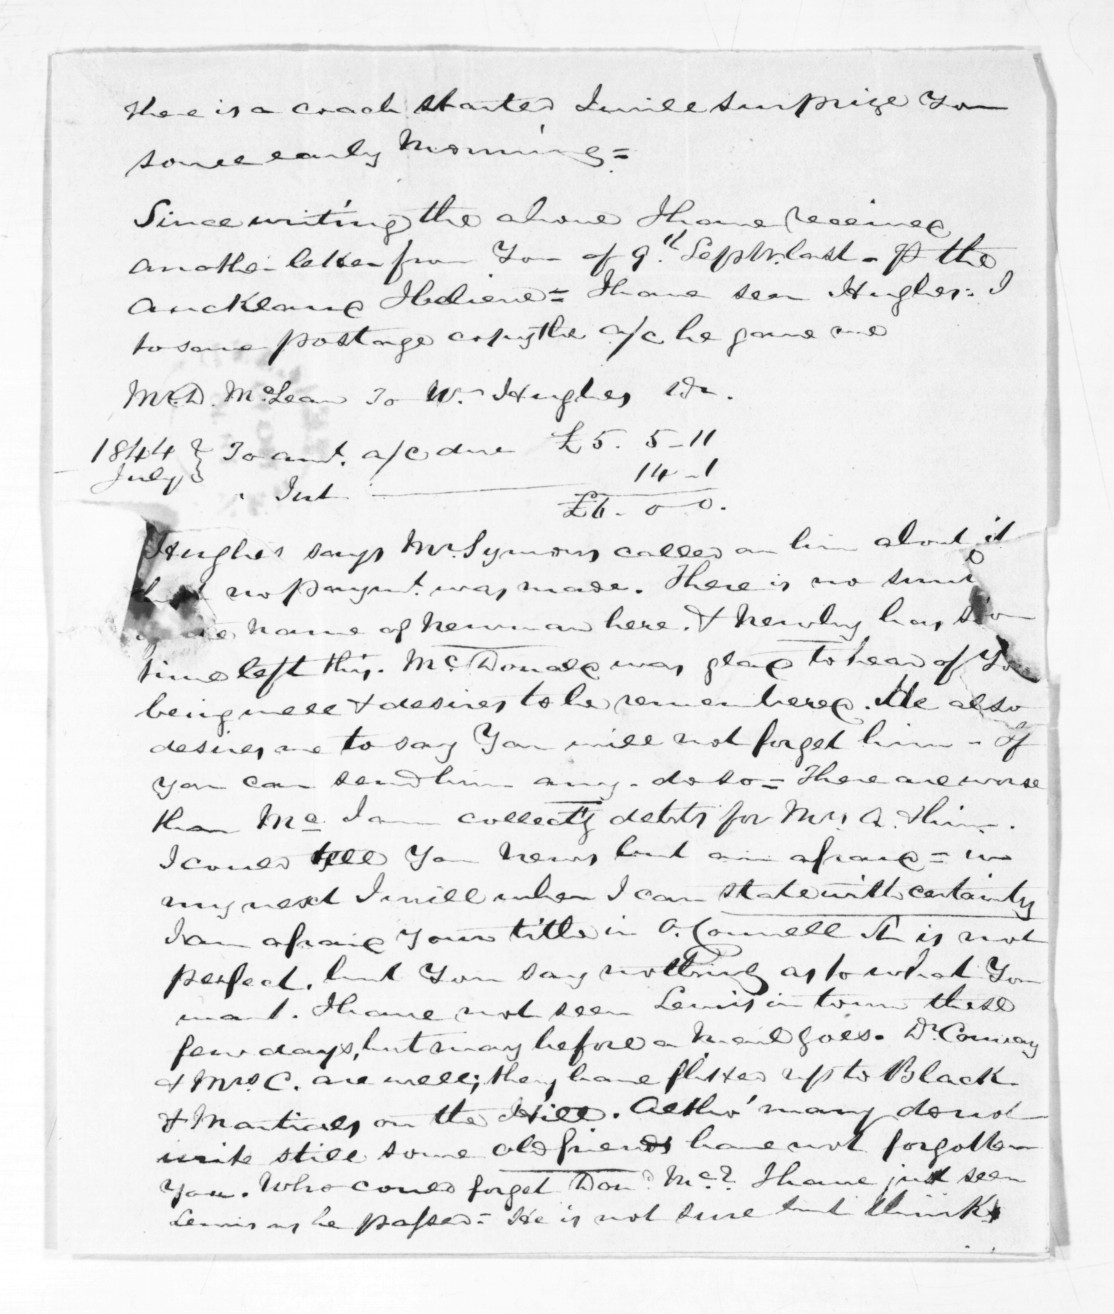 there is a coach started I will surprize You
some early Morning =
Since writing the above I have received
another letter from You of 9th Septr. last - P the
Auckland I believe = I have seen Hughes = I
to save postage copy the a/c he gave me
Mr. D. McLean To W. Hughes Dr.
1844 } To amt. a/c due £5. 5-11
July } " Int 14-1
£6. 0 0.
Hughes says Mr. Symons called on him about it
but no paymt. was made. There is no such
name of Newman here. & Newby has some
time left this. McDonald was glad to hear of You
being well & desires to be remembered. He also
desires me to say You will not forget him - If
you can send him any - do so = There are worse
than Mc. I am collectg debts for Mrs A. Him.
I could tell You News but am afraid = in
my next I will when I can state with certainty
I am afraid Your title in O.Connell St is not
perfect, but You say nothing as to what You
want. I have not seen Lewis in town these
few days, but may before a Mail goes. Dr. Conway
& Mrs C. are well; they have flitted up to Black
& Martin's on the Hill. Altho' many do not
write still some old friends have not forgotten
You. Who could forget Dond. Mc? I have just seen
Lewis as he passed = He is not sure but thinks